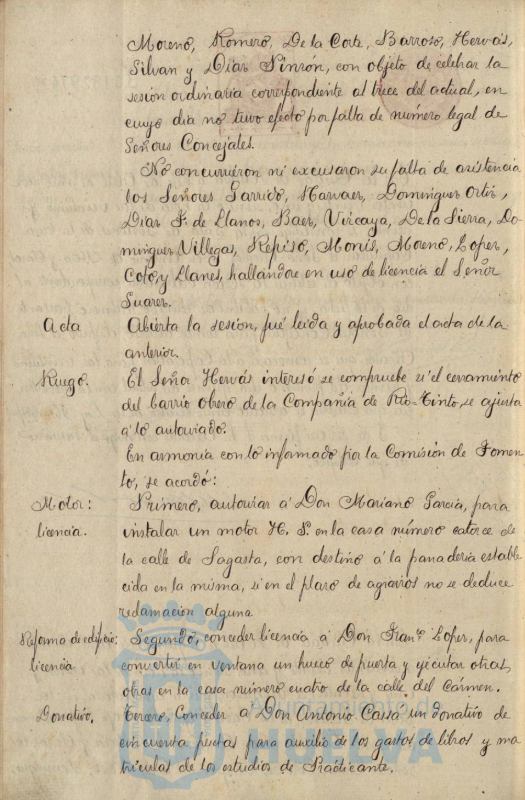 Moreno, Romero, De la Corte, Barroso, Hervás,
Silvan y Díaz Pinzón, con objeto de celebrar la
sesión ordinaria correspondiente al trece del actual, en
cuyo dia no tuvo efecto por falta de número legal de
Señores Concejales.
No concurrieron ni excusaron su falta de asistencia
los Señores Garrido, Narvaez, Dominguez Ortiz,
Diaz F. de Llanos, Baez, Vizcaya, De la Sierra, Do-
minguez Villegas, Repiso, Monis, Moreno, Lopez,
Coto, y Llanes, hallandose en uso de licencia el Señor
Suarez.
Acta Abierta la sesión, fué leida y aprobada el acta de la
anterior.
Ruego. El Señor Hervás interesó se compruebe si el cerramiento
del barrio obrero de la Compañia de Rio-Tinto, se ajusta
á lo autorizado.
En armonia con lo informado por la Comisión de Fomen
to, se acordó:
Motor: Primero, autorizar á Don Mariano Garcia, para
licencia. instalar un motor H. P. en la casa número catorce de
la calle de Sagasta, con destino á la panaderia estable
cida en la misma, si en el plazo de agravios no se deduce
reclamacion alguna
Reforma de edificio: Segundo, conceder licencia á Don Franco Lopez, para
licencia convertir en ventana un hueco de puerta y ejecutar otras
obras en la casa número cuatro de la calle del Cármen.
Donativo. Tercero, Conceder a Don Antonio Cassá un donativo de
cincuenta pesetas para auxilio de los gastos de libros y ma
triculas de los estudios de Practicante.
Ayuntamiento de
HUELVA